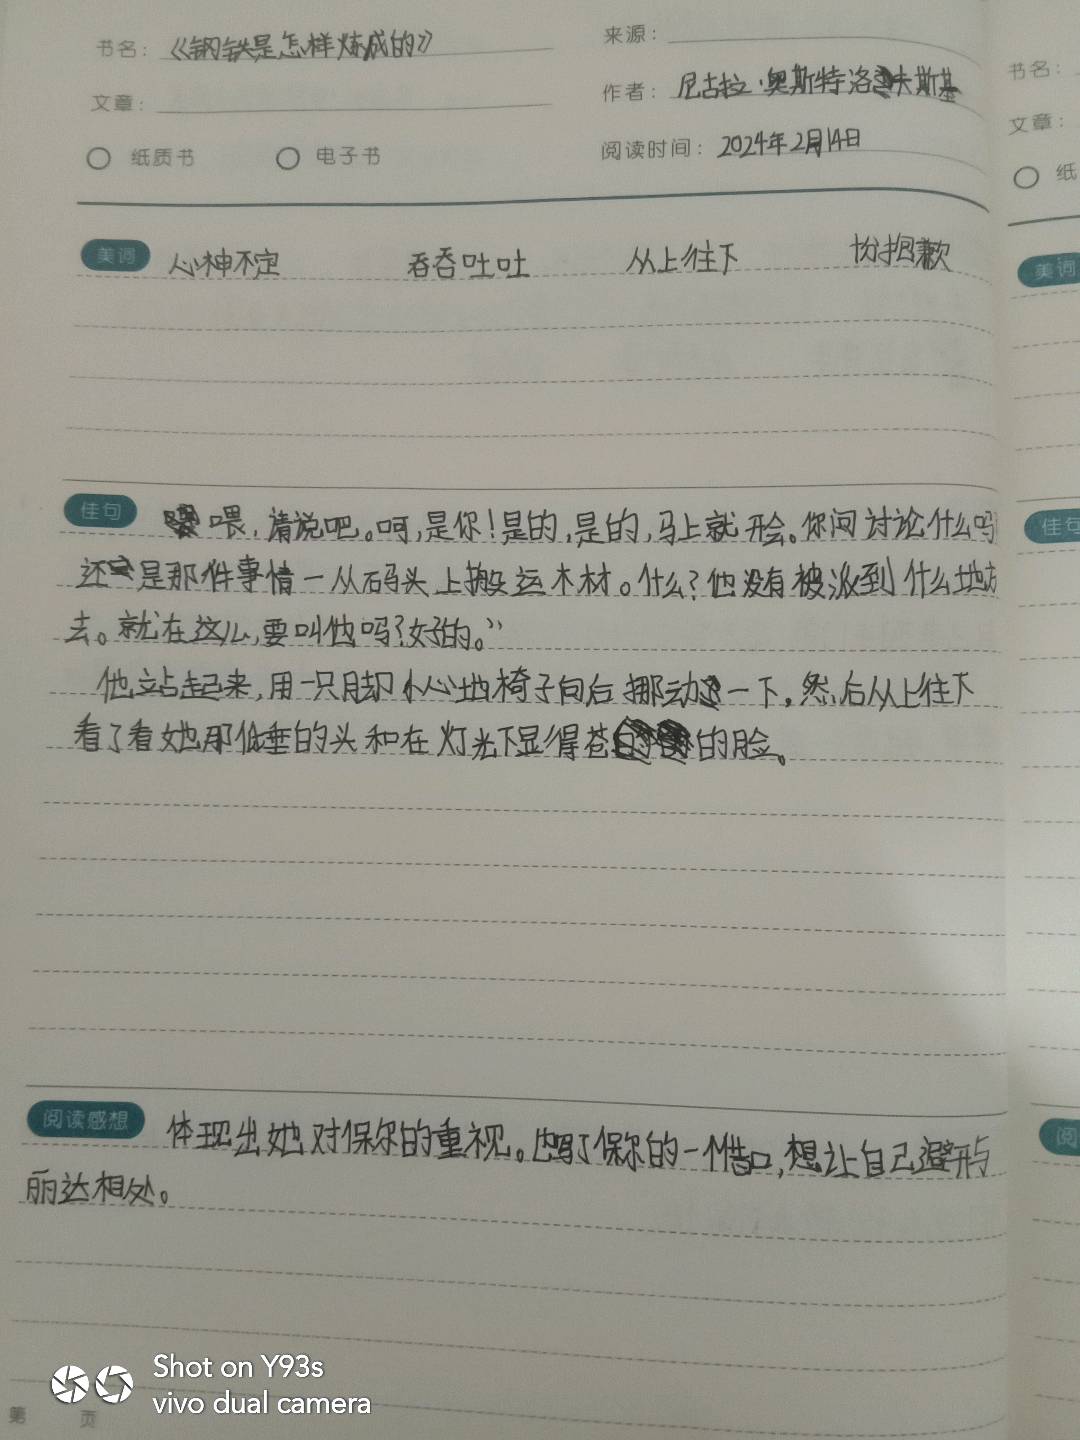 书名：《钢铁是怎样炼成的》
来源：
文章：
作者：尼古拉·奥斯特洛夫斯基
纸质书 电子书
阅读时间：2024年2月14日
美词 心神不定 吞吞吐吐 从上往下 抱歉
佳句 喂，请说吧。呵，是你！是的，是的，马上就开会。你问讨论什么吗
还是那件事情一从码头上搬运木材。什么？他没有被派到什么地方
去。就在这儿，要叫他吗？好的。”
他站起来，用一只脚小心地椅子向后挪动一下，然后从上往下
看了看她那低垂的头和在灯光下显得苍白的脸。
阅读感想 体现出她对保尔的重视。也写了保尔的一个借口，想让自己避开与
丽达相处。
第 页
书名：
文章：
纸
美词
佳句
阅
Shot on Y93s
vivo dual camera